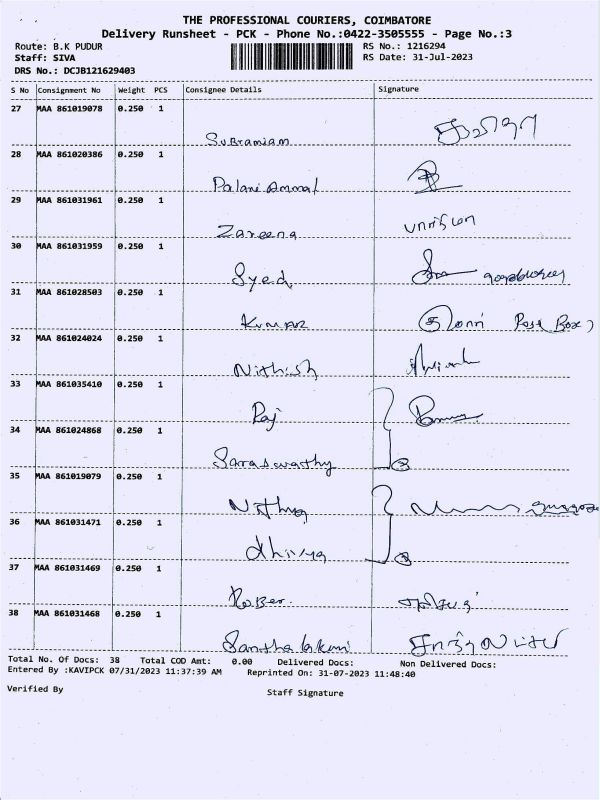 THE PROFESSIONAL COURIERS, COIMBATORE
Delivery Runsheet - PCK - Phone No.:0422-3505555 - Page No.:3
Route: B.K PUDUR RS No.: 1216294
Staff: SIVA RS Date: 31-Jul-2023
DRS No.: DCJB121629403
S No Consignment No Weight PCS Consignee Details Signature
27 MAA 861019078 0.250 1
Subramiam
28 MAA 861020386 0.250 1
Palani Ammal
29 MAA 861031961 0.250 1
Zareena
30 MAA 861031959 0.250 1
Syed
31 MAA 861028503 0.250 1
Kumar Post Box)
32 MAA 861024024 0.250 1
Nithish
33 MAA 861035410 0.250 1
Raj
34 MAA 861024868 0.250 1
Saraswathy
35 MAA 861019079 0.250 1
Nithya
36 MAA 861031471 0.250 1
dhivya
37 MAA 861031469 0.250 1
Rober.
38 MAA 861031468 0.250 1
Santha lakmi
Total No. Of Docs: 38 Total COD Amt: 0.00 Delivered Docs: Non Delivered Docs:
Entered By :KAVIPCK 07/31/2023 11:37:39 AM Reprinted On: 31-07-2023 11:48:40
Verified By Staff Signature